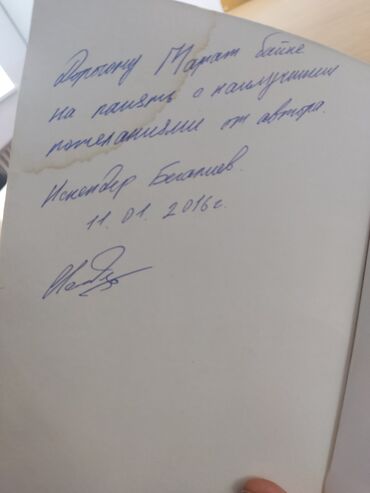 Дорогому Марат байке
на память с наилучшими
пожеланиями от автора.
Искендер Бегалиев.
11.01.2016г.